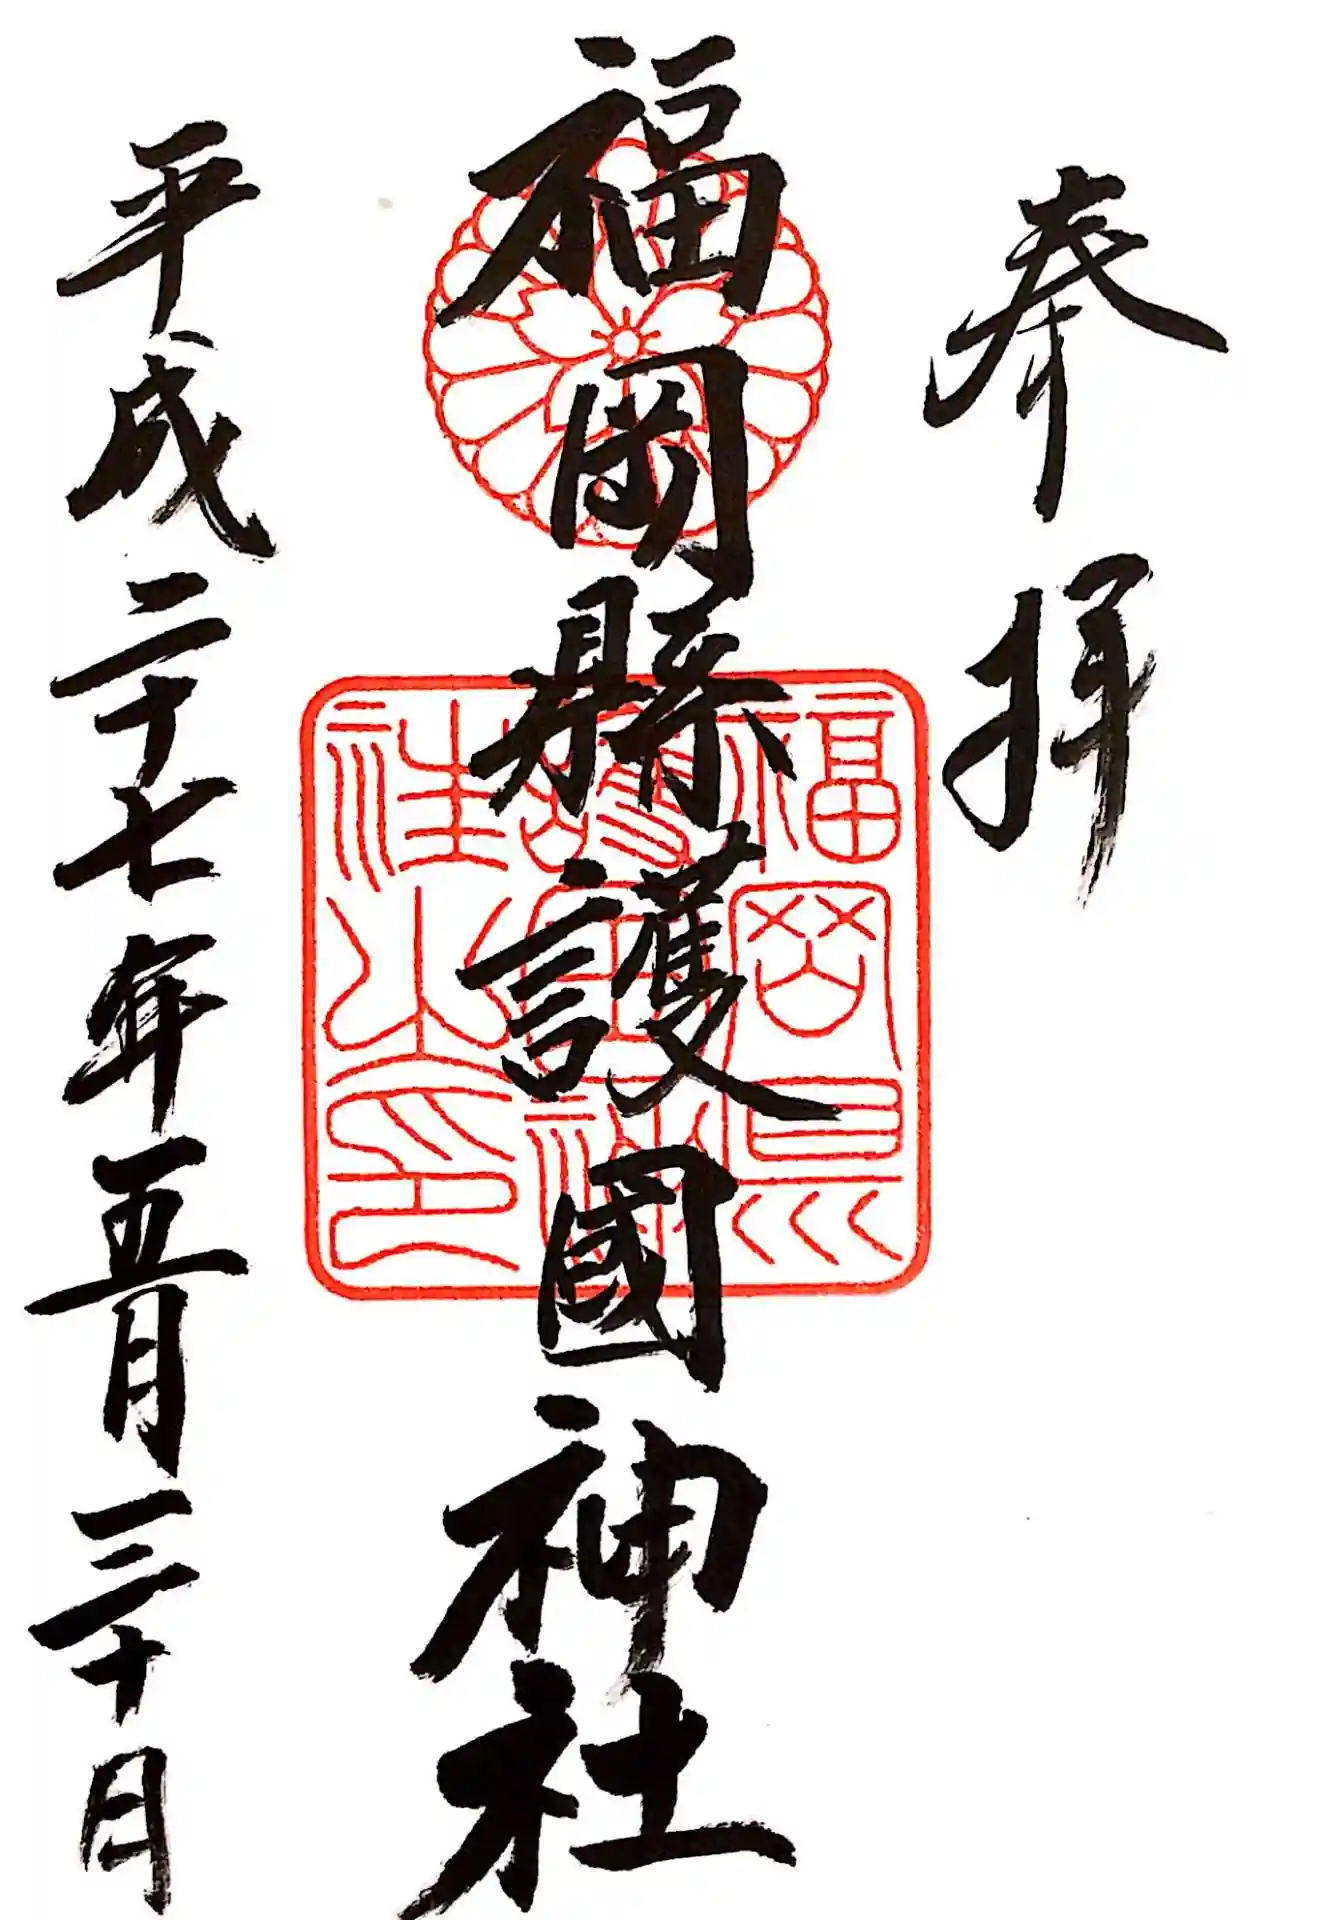 奉拝
福岡縣護國神社
福岡縣
護國神
社之印
平成二十七年五月三十日